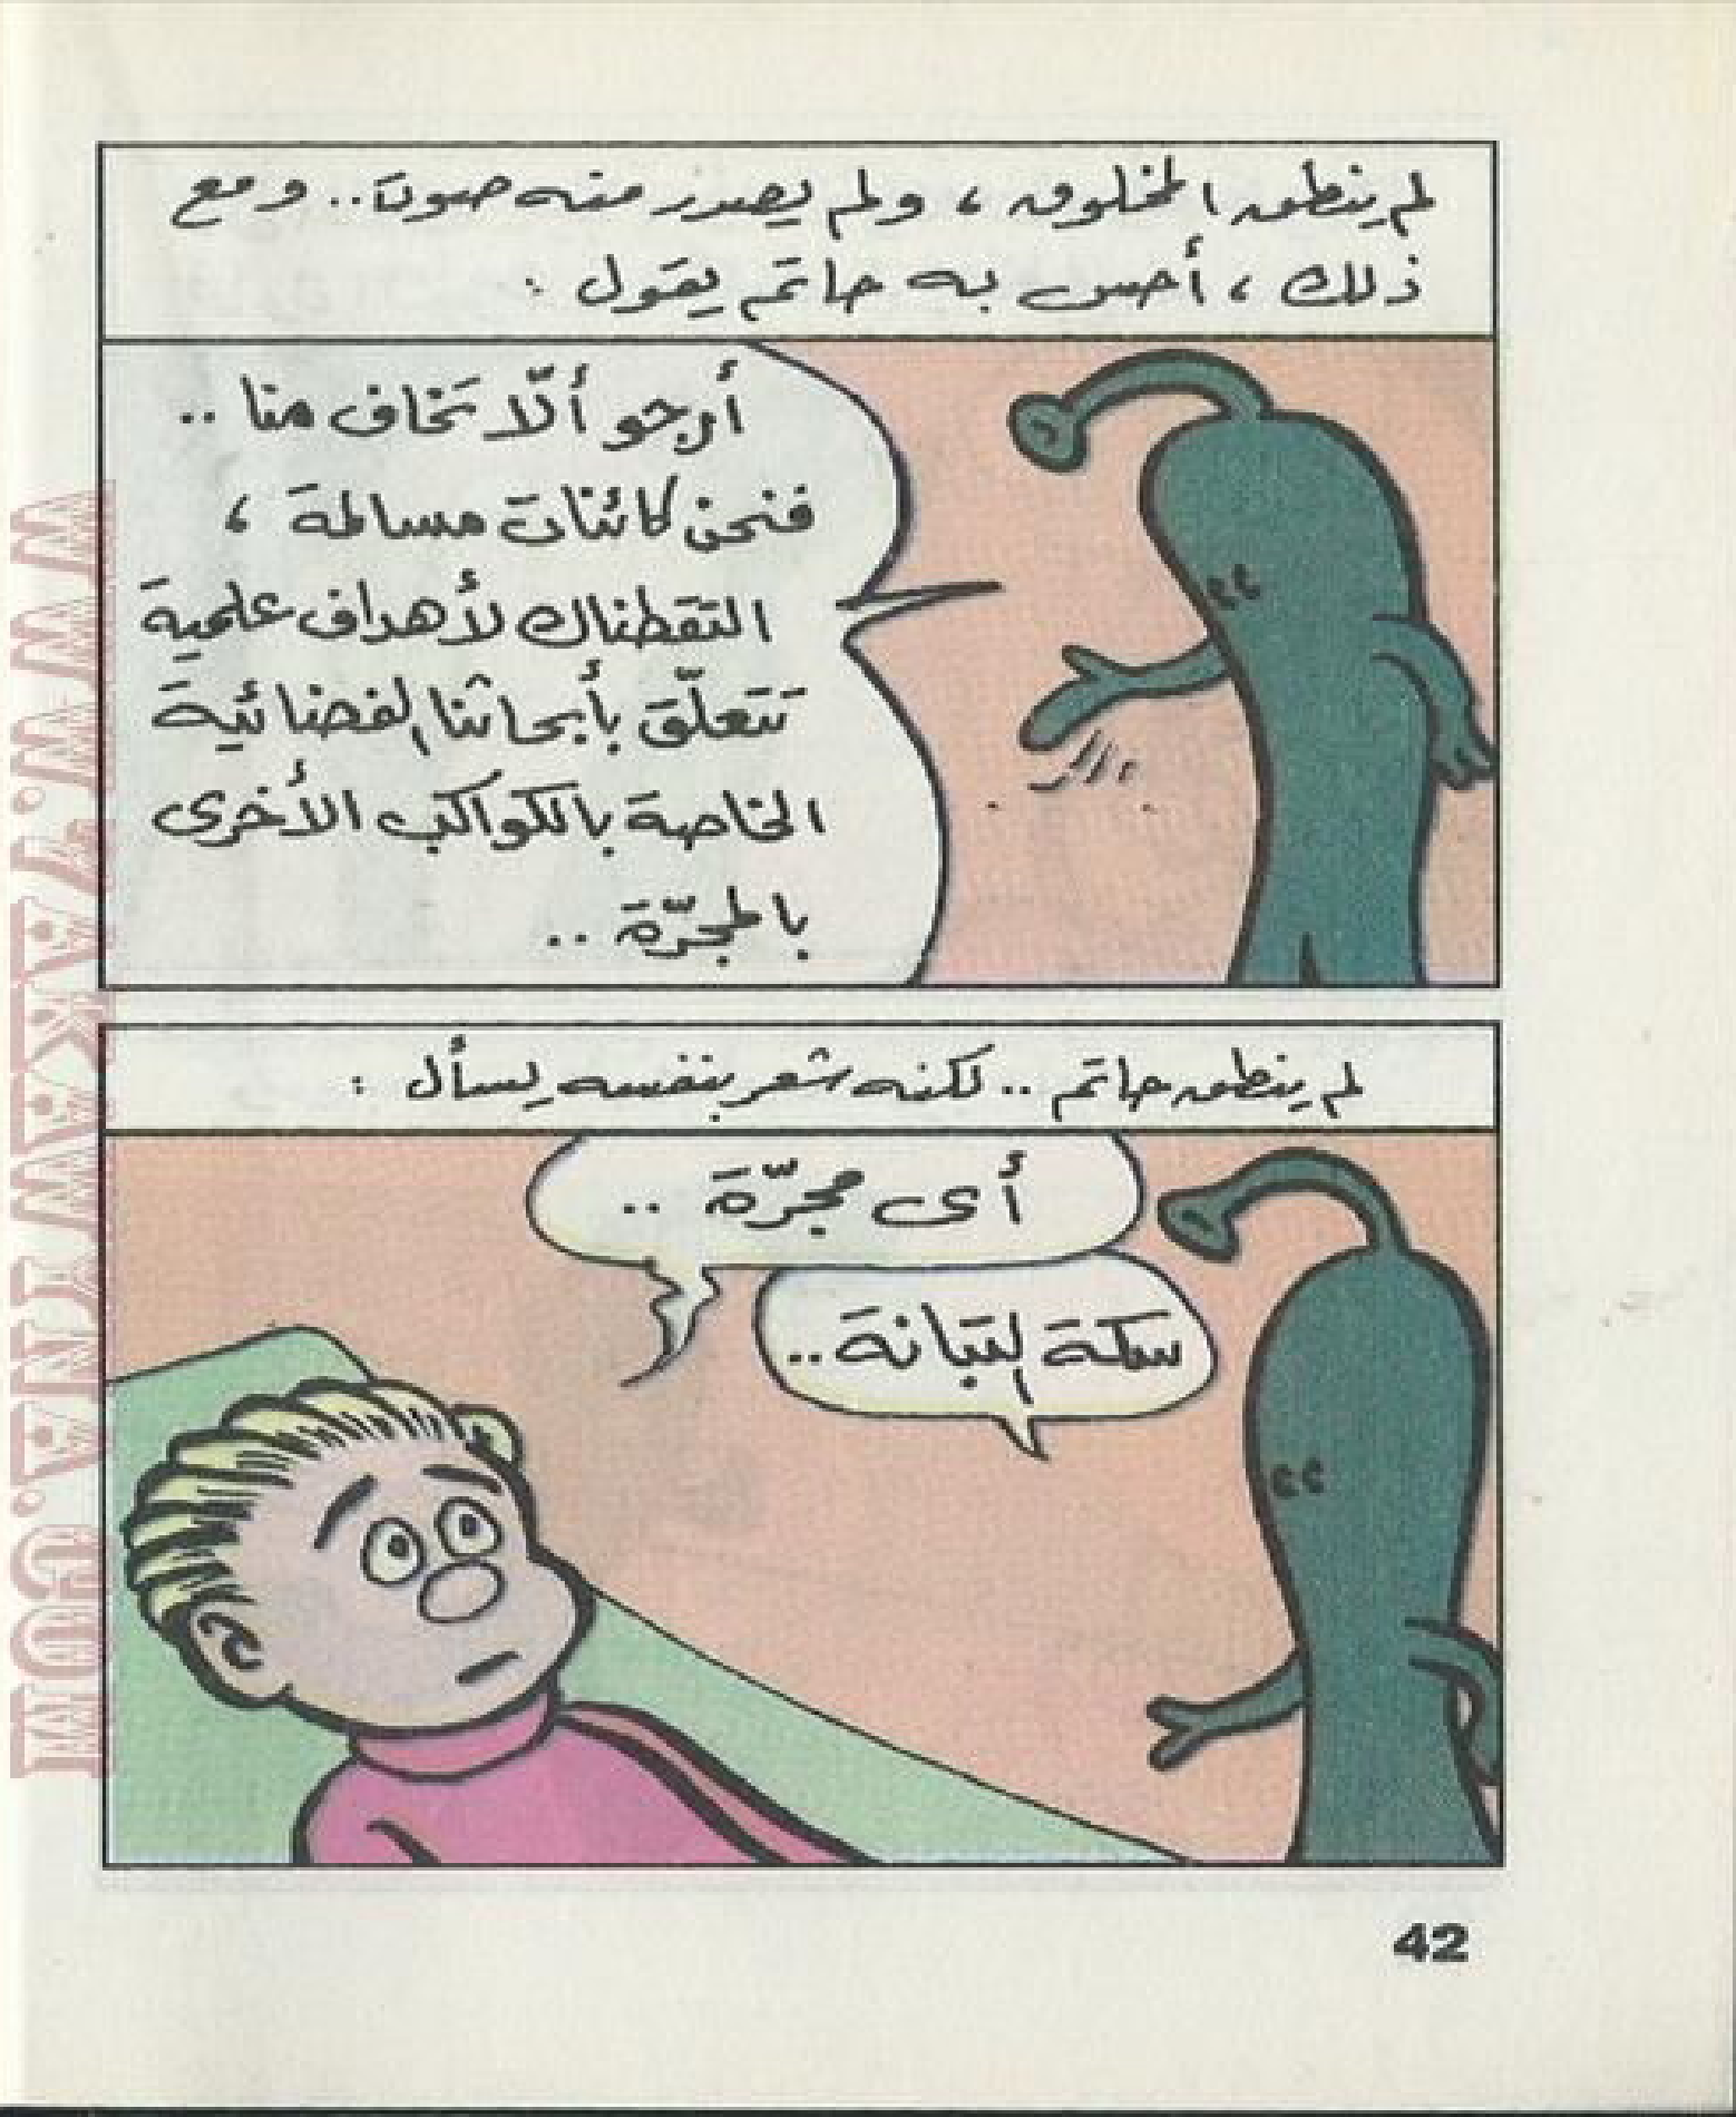 لم ينطق المخلوق ، ولم يصدر منه صوت .. ومع
ذلك ، أحس به حاتم يقول :
أرجو ألّا تخاف منا ..
فنحن كائنات مسالمة ،
التقطناك لأهداف علمية
تتعلّق بأبحاثنا الفضائية
الخاصة بالكواكب الأخرى
بالمجرّة ..
لم ينطق حاتم .. لكنه شعر بنفسه يسأل :
أى مجرّة ..
سكة التبانة ..
42
WWW.7AKAWINA.COM